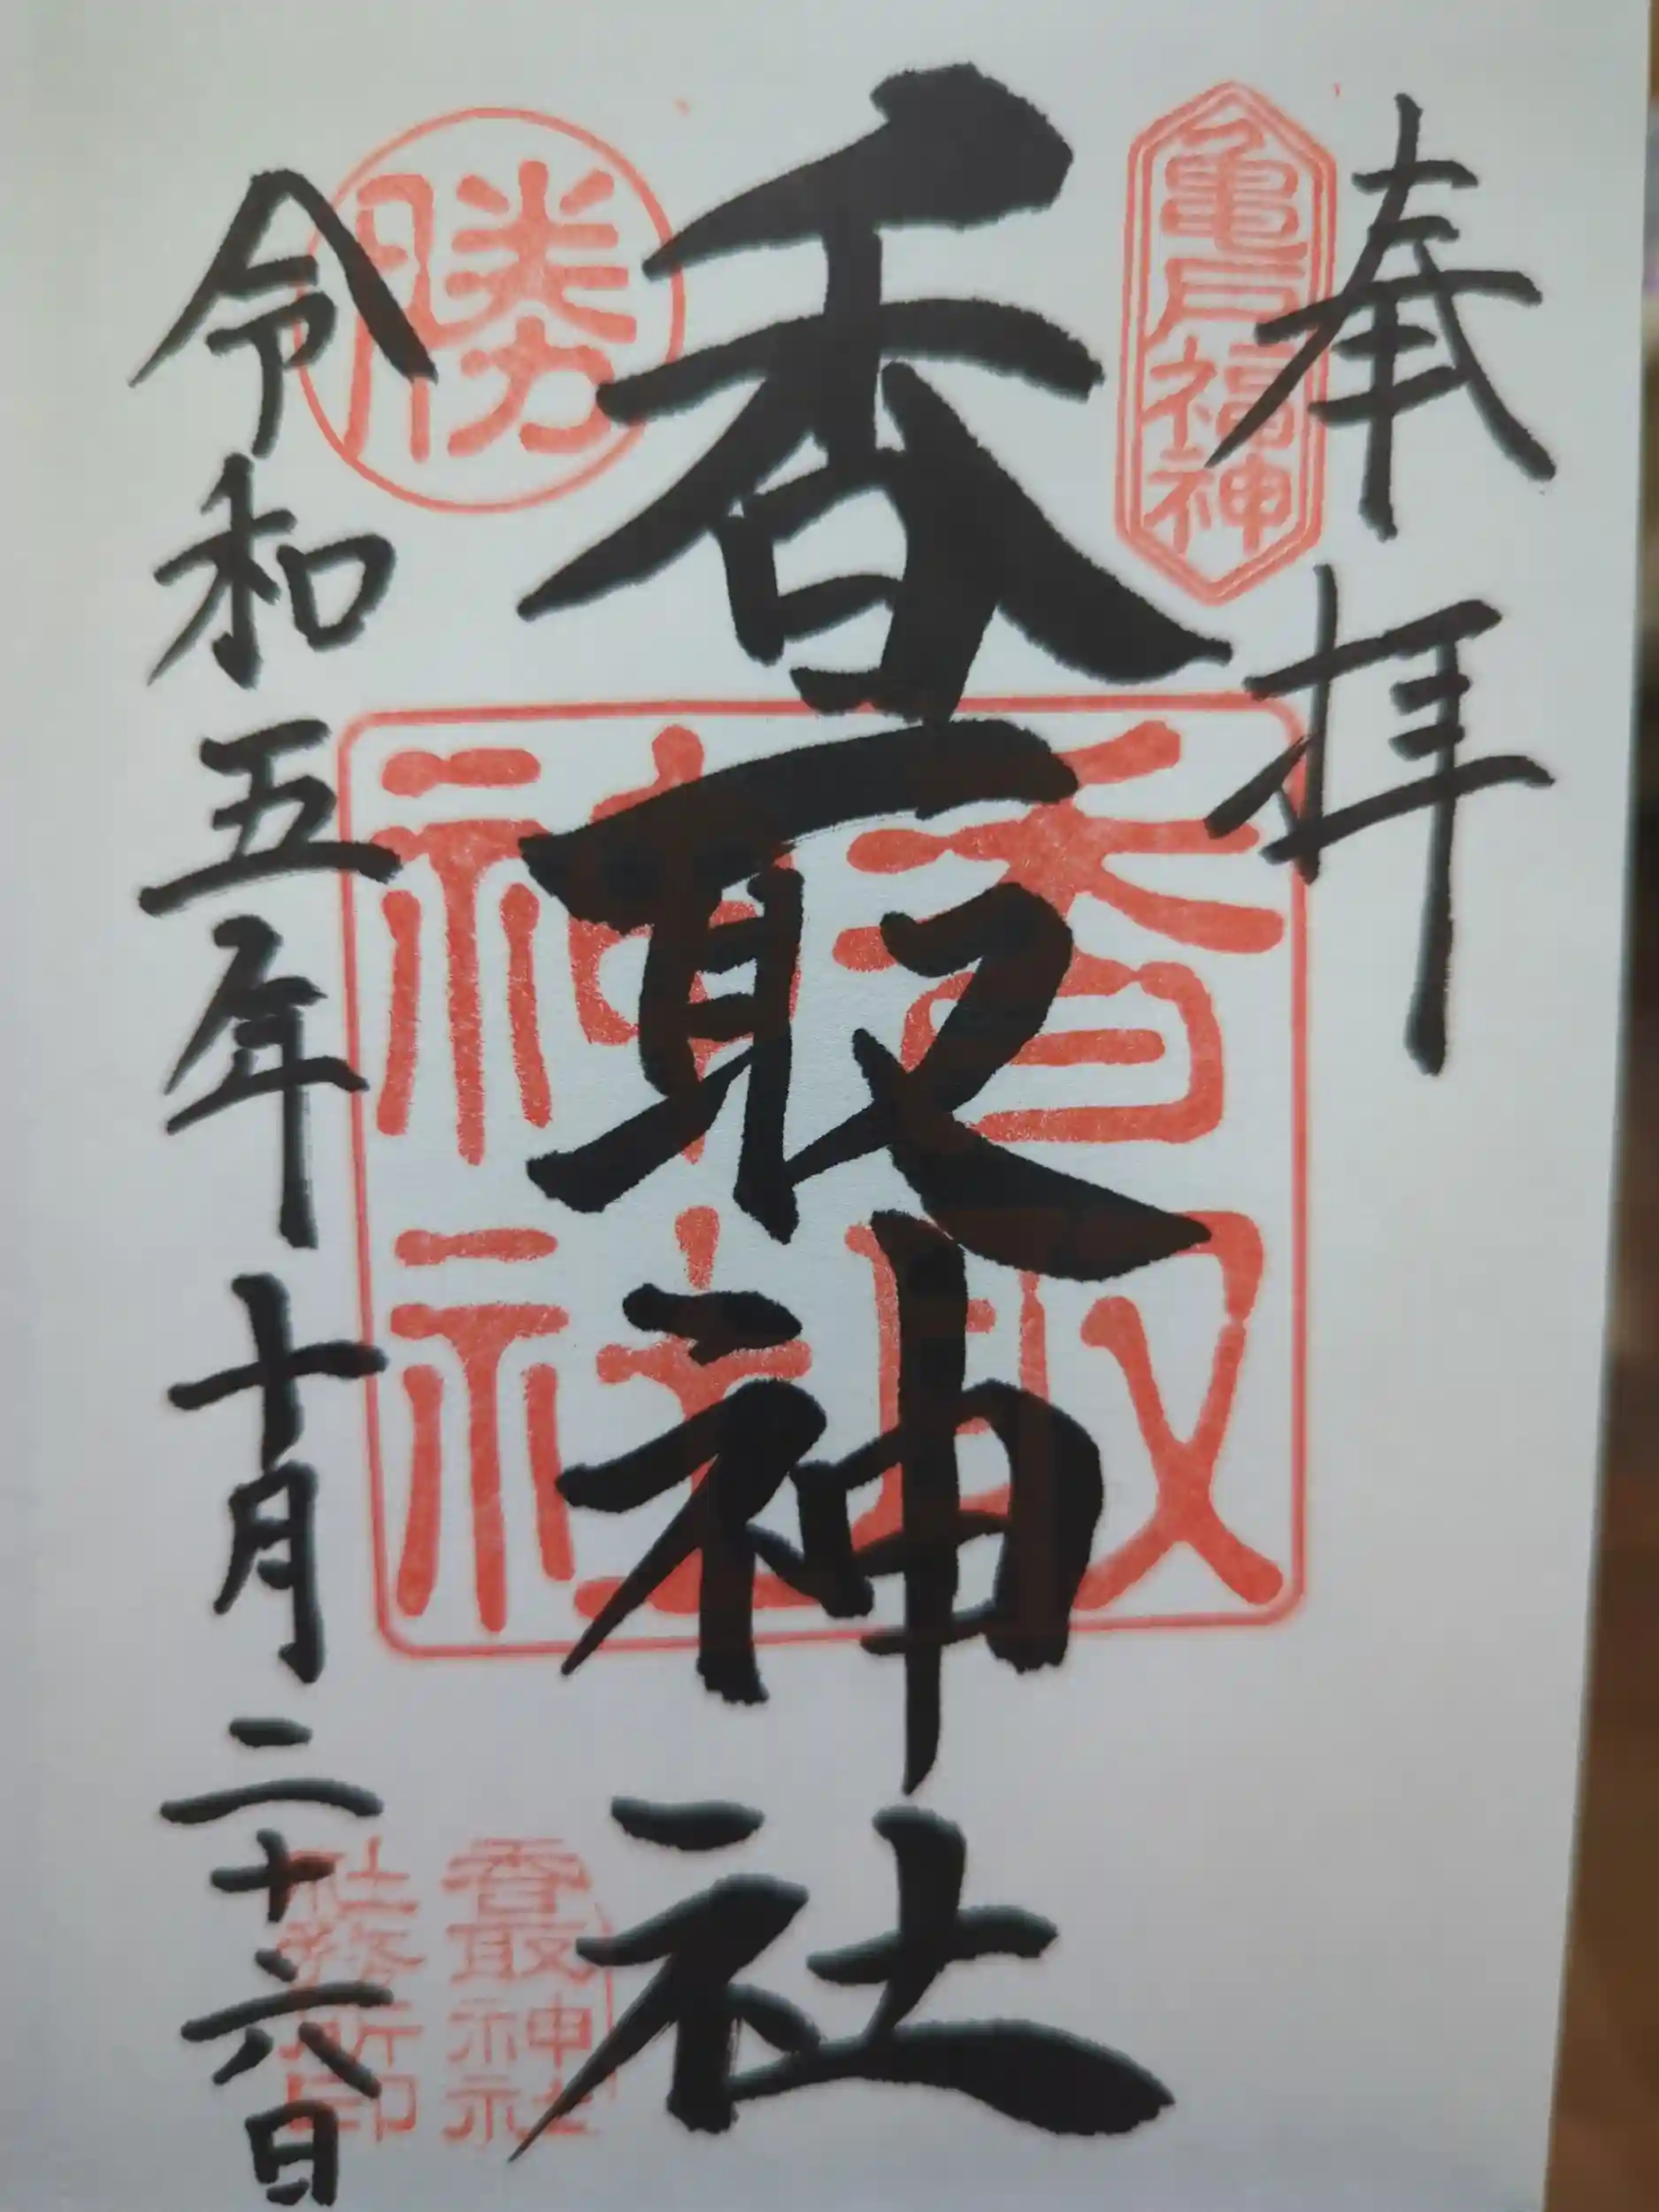 奉拝
亀戸福神
香取神社
香取
神社
勝
令和五年十月二十六日
香取神社
社務所印